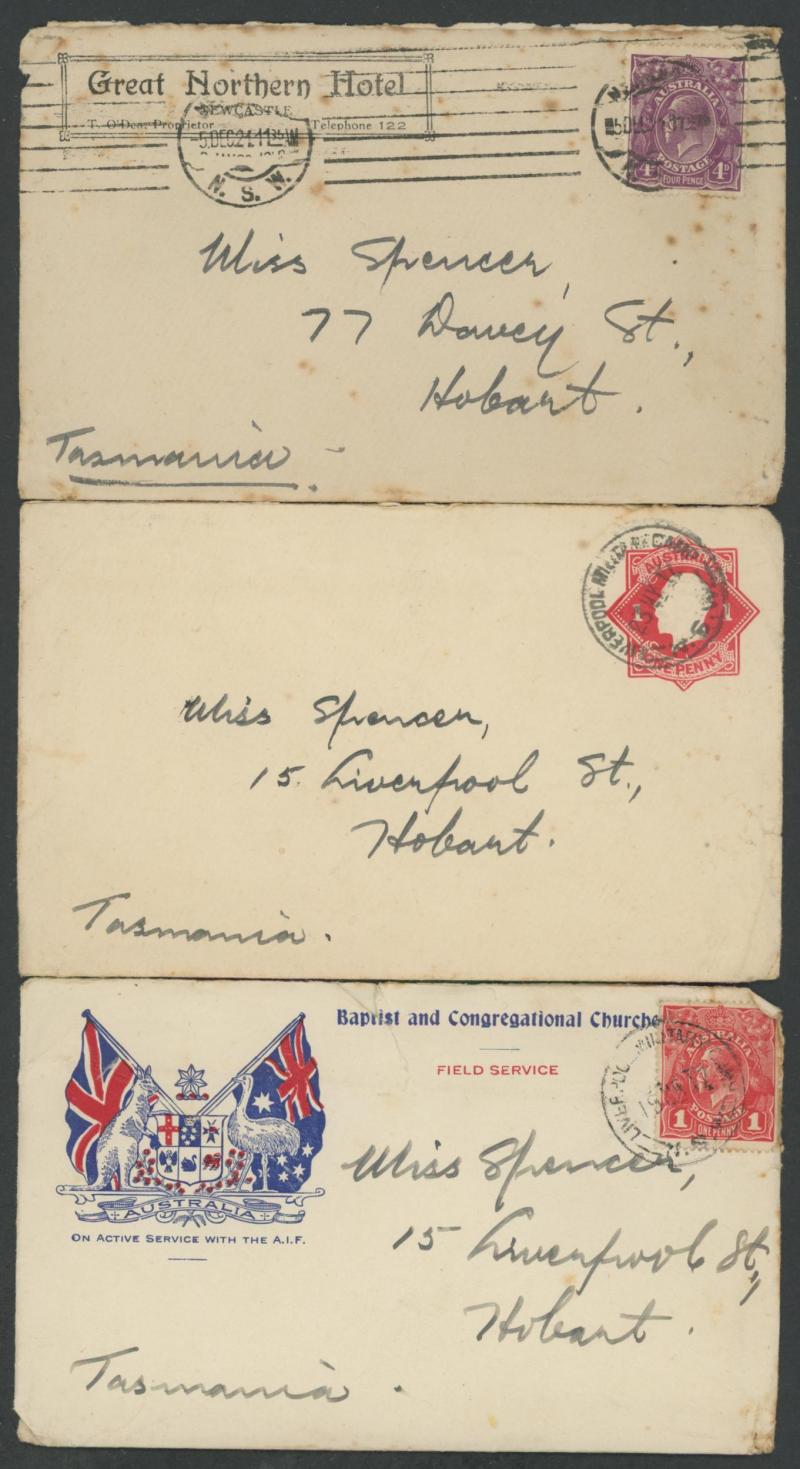 Great Northern Hotel
NEWCASTLE
T. O'Dea, Proprietor Telephone 122
5 DEC 21 11
N. S. W.
AUSTRALIA
POSTAGE
4D 4D
FOUR PENCE
Miss Spencer,
77 Davey St.,
Hobart.
Tasmania
LIVERPOOL MILITARY CAMP
AUSTRALIA
1 1
ONE PENNY
Miss Spencer,
15 Liverpool St.,
Hobart.
Tasmania.
Baptist and Congregational Churche
FIELD SERVICE
LIVERPOOL MILITARY
AUSTRALIA
POSTAGE
1 1
ONE PENNY
AUSTRALIA
ON ACTIVE SERVICE WITH THE A.I.F.
Miss Spencer,
15 Liverpool St.,
Hobart.
Tasmania.